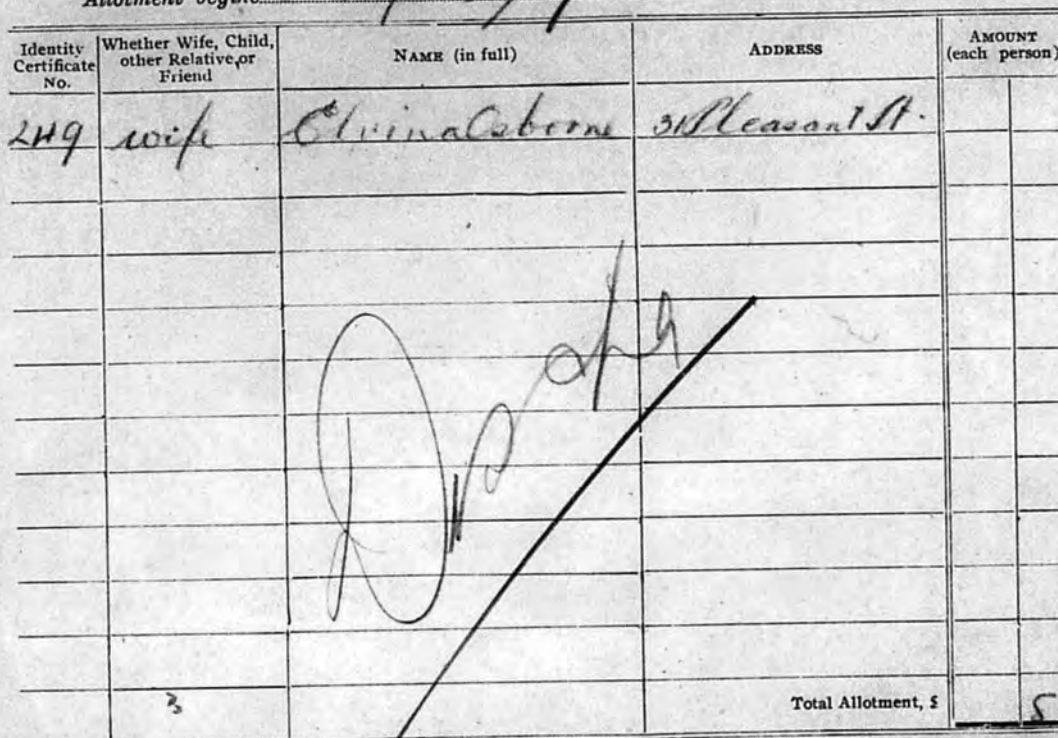 Allotment begins
Identity Certificate No.
Whether Wife, Child, other Relative, or Friend
NAME (in full)
ADDRESS
AMOUNT (each person)
249 wife Elvina Osborne 31 Pleasant St.
3
Total Allotment, $